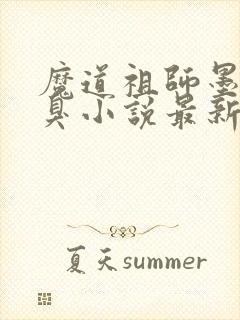 魔道祖師墨
臭小說最新
夏天summer